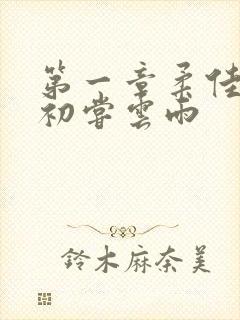 第一章柔佳
初嘗雲雨
鈴木麻奈美